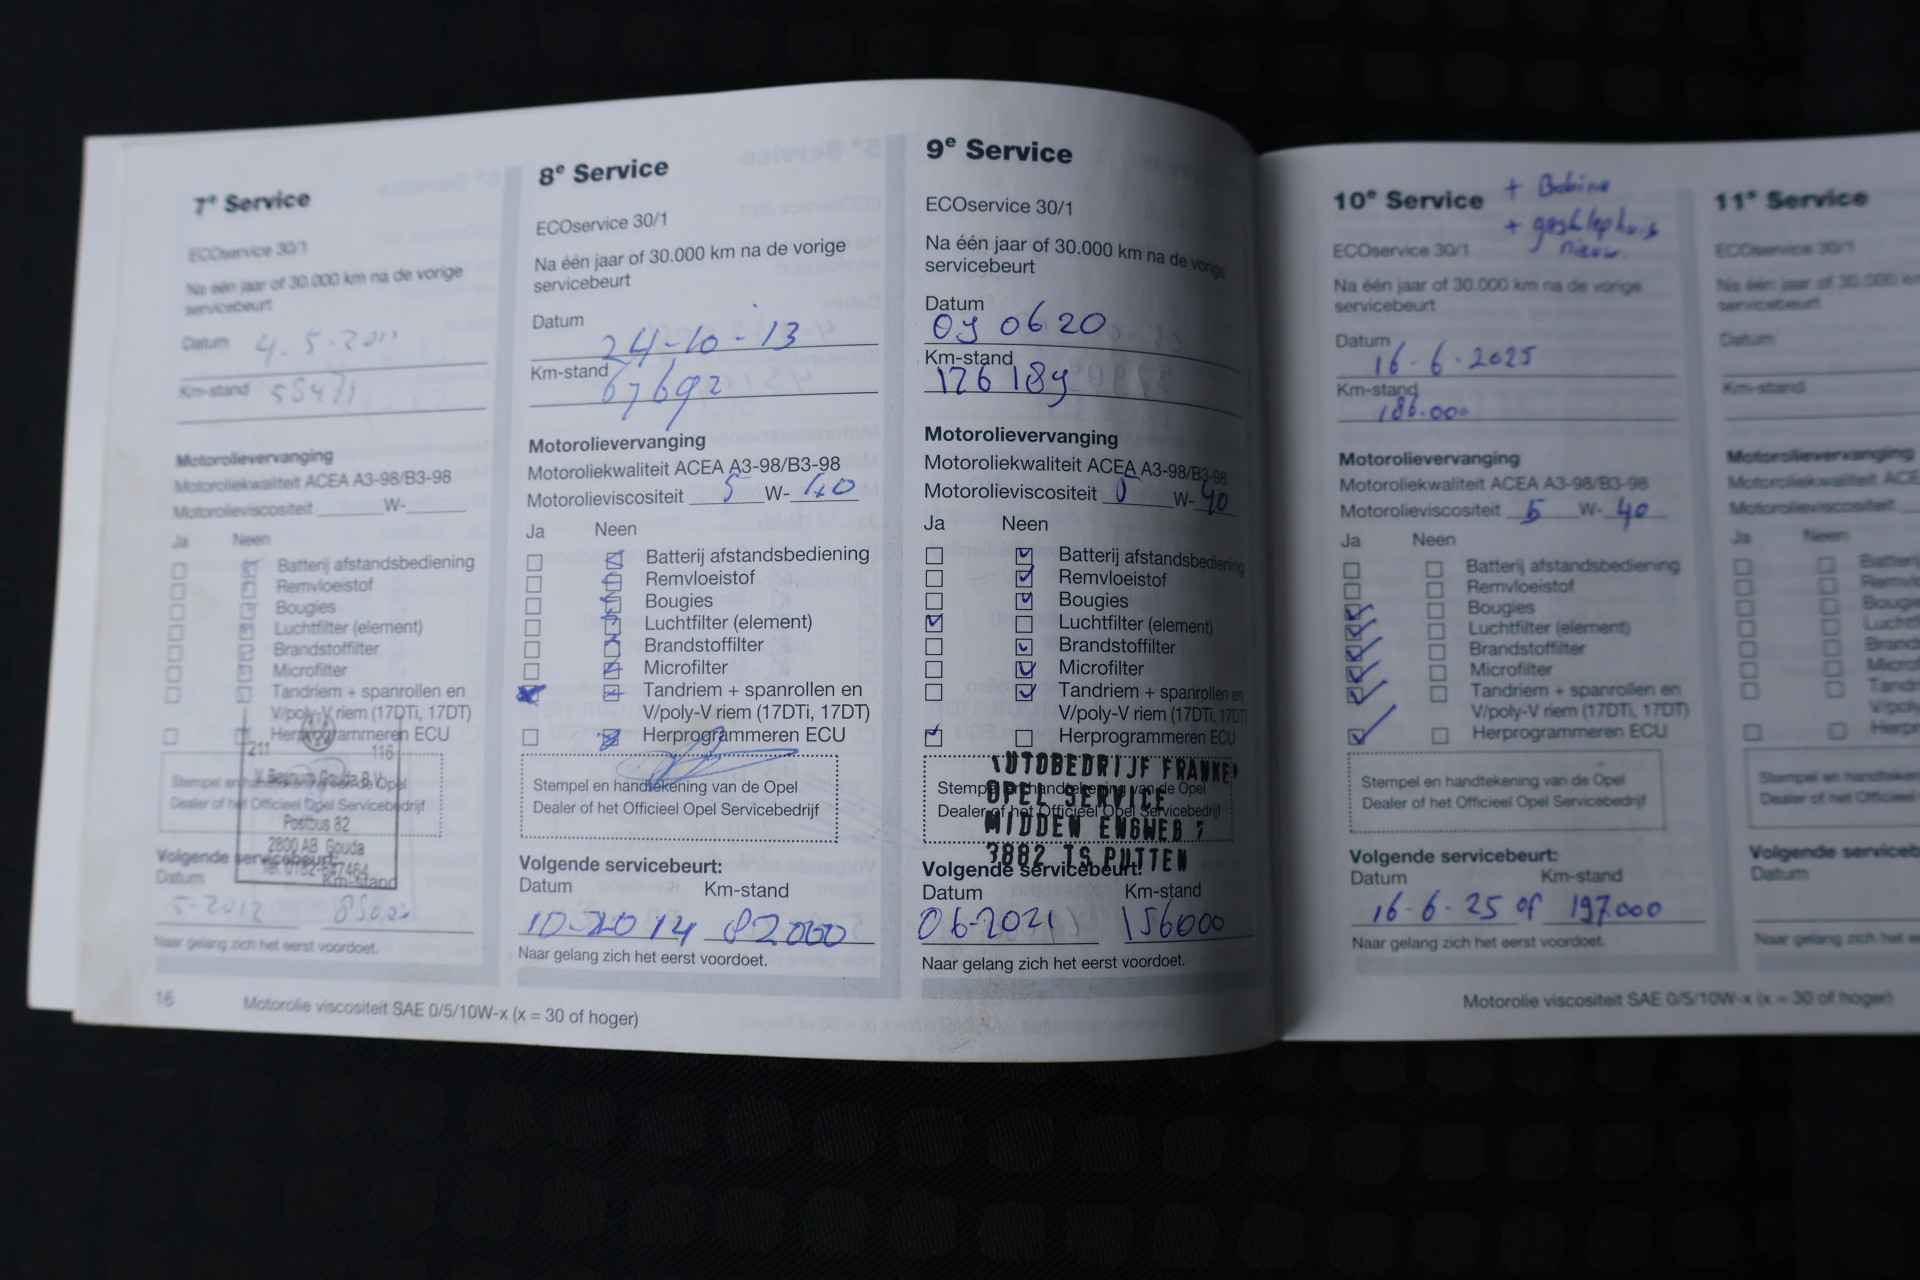 7e Service
ECOservice 30/1
Na één jaar of 30.000 km na de vorige
servicebeurt
Datum 4.5.
Km-stand 55471
Motorolievervanging
Motoroliekwaliteit ACEA A3-98/B3-98
Motorolieviscositeit W-
Ja Neen
Batterij afstandsbediening
Remvloeistof
Bougies
Luchtfilter (element)
Brandstoffilter
Microfilter
Tandriem + spanrollen en
V/poly-V riem (17DTi, 17DT)
Herprogrammeren ECU
211 116
Stempel en handtekening van de Opel
Dealer of het Officieel Opel Servicebedrijf
Gouda B.V.
Postbus 82
2800 AB Gouda
Volgende servicebeurt:
Datum Km-stand
5-2012 85000
Naar gelang zich het eerst voordoet.
16 Motorolie viscositeit SAE 0/5/10W-x (x = 30 of hoger)
8e Service
ECOservice 30/1
Na één jaar of 30.000 km na de vorige
servicebeurt
Datum
24-10-'13
Km-stand
67692
Motorolievervanging
Motoroliekwaliteit ACEA A3-98/B3-98
Motorolieviscositeit 5 W- 40
Ja Neen
Batterij afstandsbediening
Remvloeistof
Bougies
Luchtfilter (element)
Brandstoffilter
Microfilter
Tandriem + spanrollen en
V/poly-V riem (17DTi, 17DT)
Herprogrammeren ECU
Stempel en handtekening van de Opel
Dealer of het Officieel Opel Servicebedrijf
Volgende servicebeurt:
Datum Km-stand
10-2014 82000
Naar gelang zich het eerst voordoet.
9e Service
ECOservice 30/1
Na één jaar of 30.000 km na de vorige
servicebeurt
Datum
09 06 20
Km-stand
126189
Motorolievervanging
Motoroliekwaliteit ACEA A3-98/B3-98
Motorolieviscositeit 0 W- 40
Ja Neen
Batterij afstandsbediening
Remvloeistof
Bougies
Luchtfilter (element)
Brandstoffilter
Microfilter
Tandriem + spanrollen en
V/poly-V riem (17DTi, 17DT)
Herprogrammeren ECU
AUTOBEDRIJF FRANKEN
Stempel en handtekening van de Opel
OPEL SERVICE
Dealer of het Officieel Opel Servicebedrijf
MIDDEN ENGWEG 7
3882 TS PUTTEN
Volgende servicebeurt:
Datum Km-stand
06-2021 156000
Naar gelang zich het eerst voordoet.
10e Service + Bobine
+ gashlephuis
nieuw
ECOservice 30/1
Na één jaar of 30.000 km na de vorige
servicebeurt
Datum
16-6-2025
Km-stand
186.000
Motorolievervanging
Motoroliekwaliteit ACEA A3-98/B3-98
Motorolieviscositeit 5 W- 40
Ja Neen
Batterij afstandsbediening
Remvloeistof
Bougies
Luchtfilter (element)
Brandstoffilter
Microfilter
Tandriem + spanrollen en
V/poly-V riem (17DTi, 17DT)
Herprogrammeren ECU
Stempel en handtekening van de Opel
Dealer of het Officieel Opel Servicebedrijf
Volgende servicebeurt:
Datum Km-stand
16-6-25 of 197.000
Naar gelang zich het eerst voordoet.
Motorolie viscositeit SAE 0/5/10W-x (x = 30 of hoger)
11e Service
ECOservice 30/1
Na één jaar of 30.000 km
servicebeurt
Datum
Km-stand
Motorolievervanging
Motoroliekwaliteit ACE
Motorolieviscositeit
Ja Neen
Stempel en handtekening
Dealer of het Officieel Opel
Volgende serviceb
Datum
Naar gelang zich het eerst